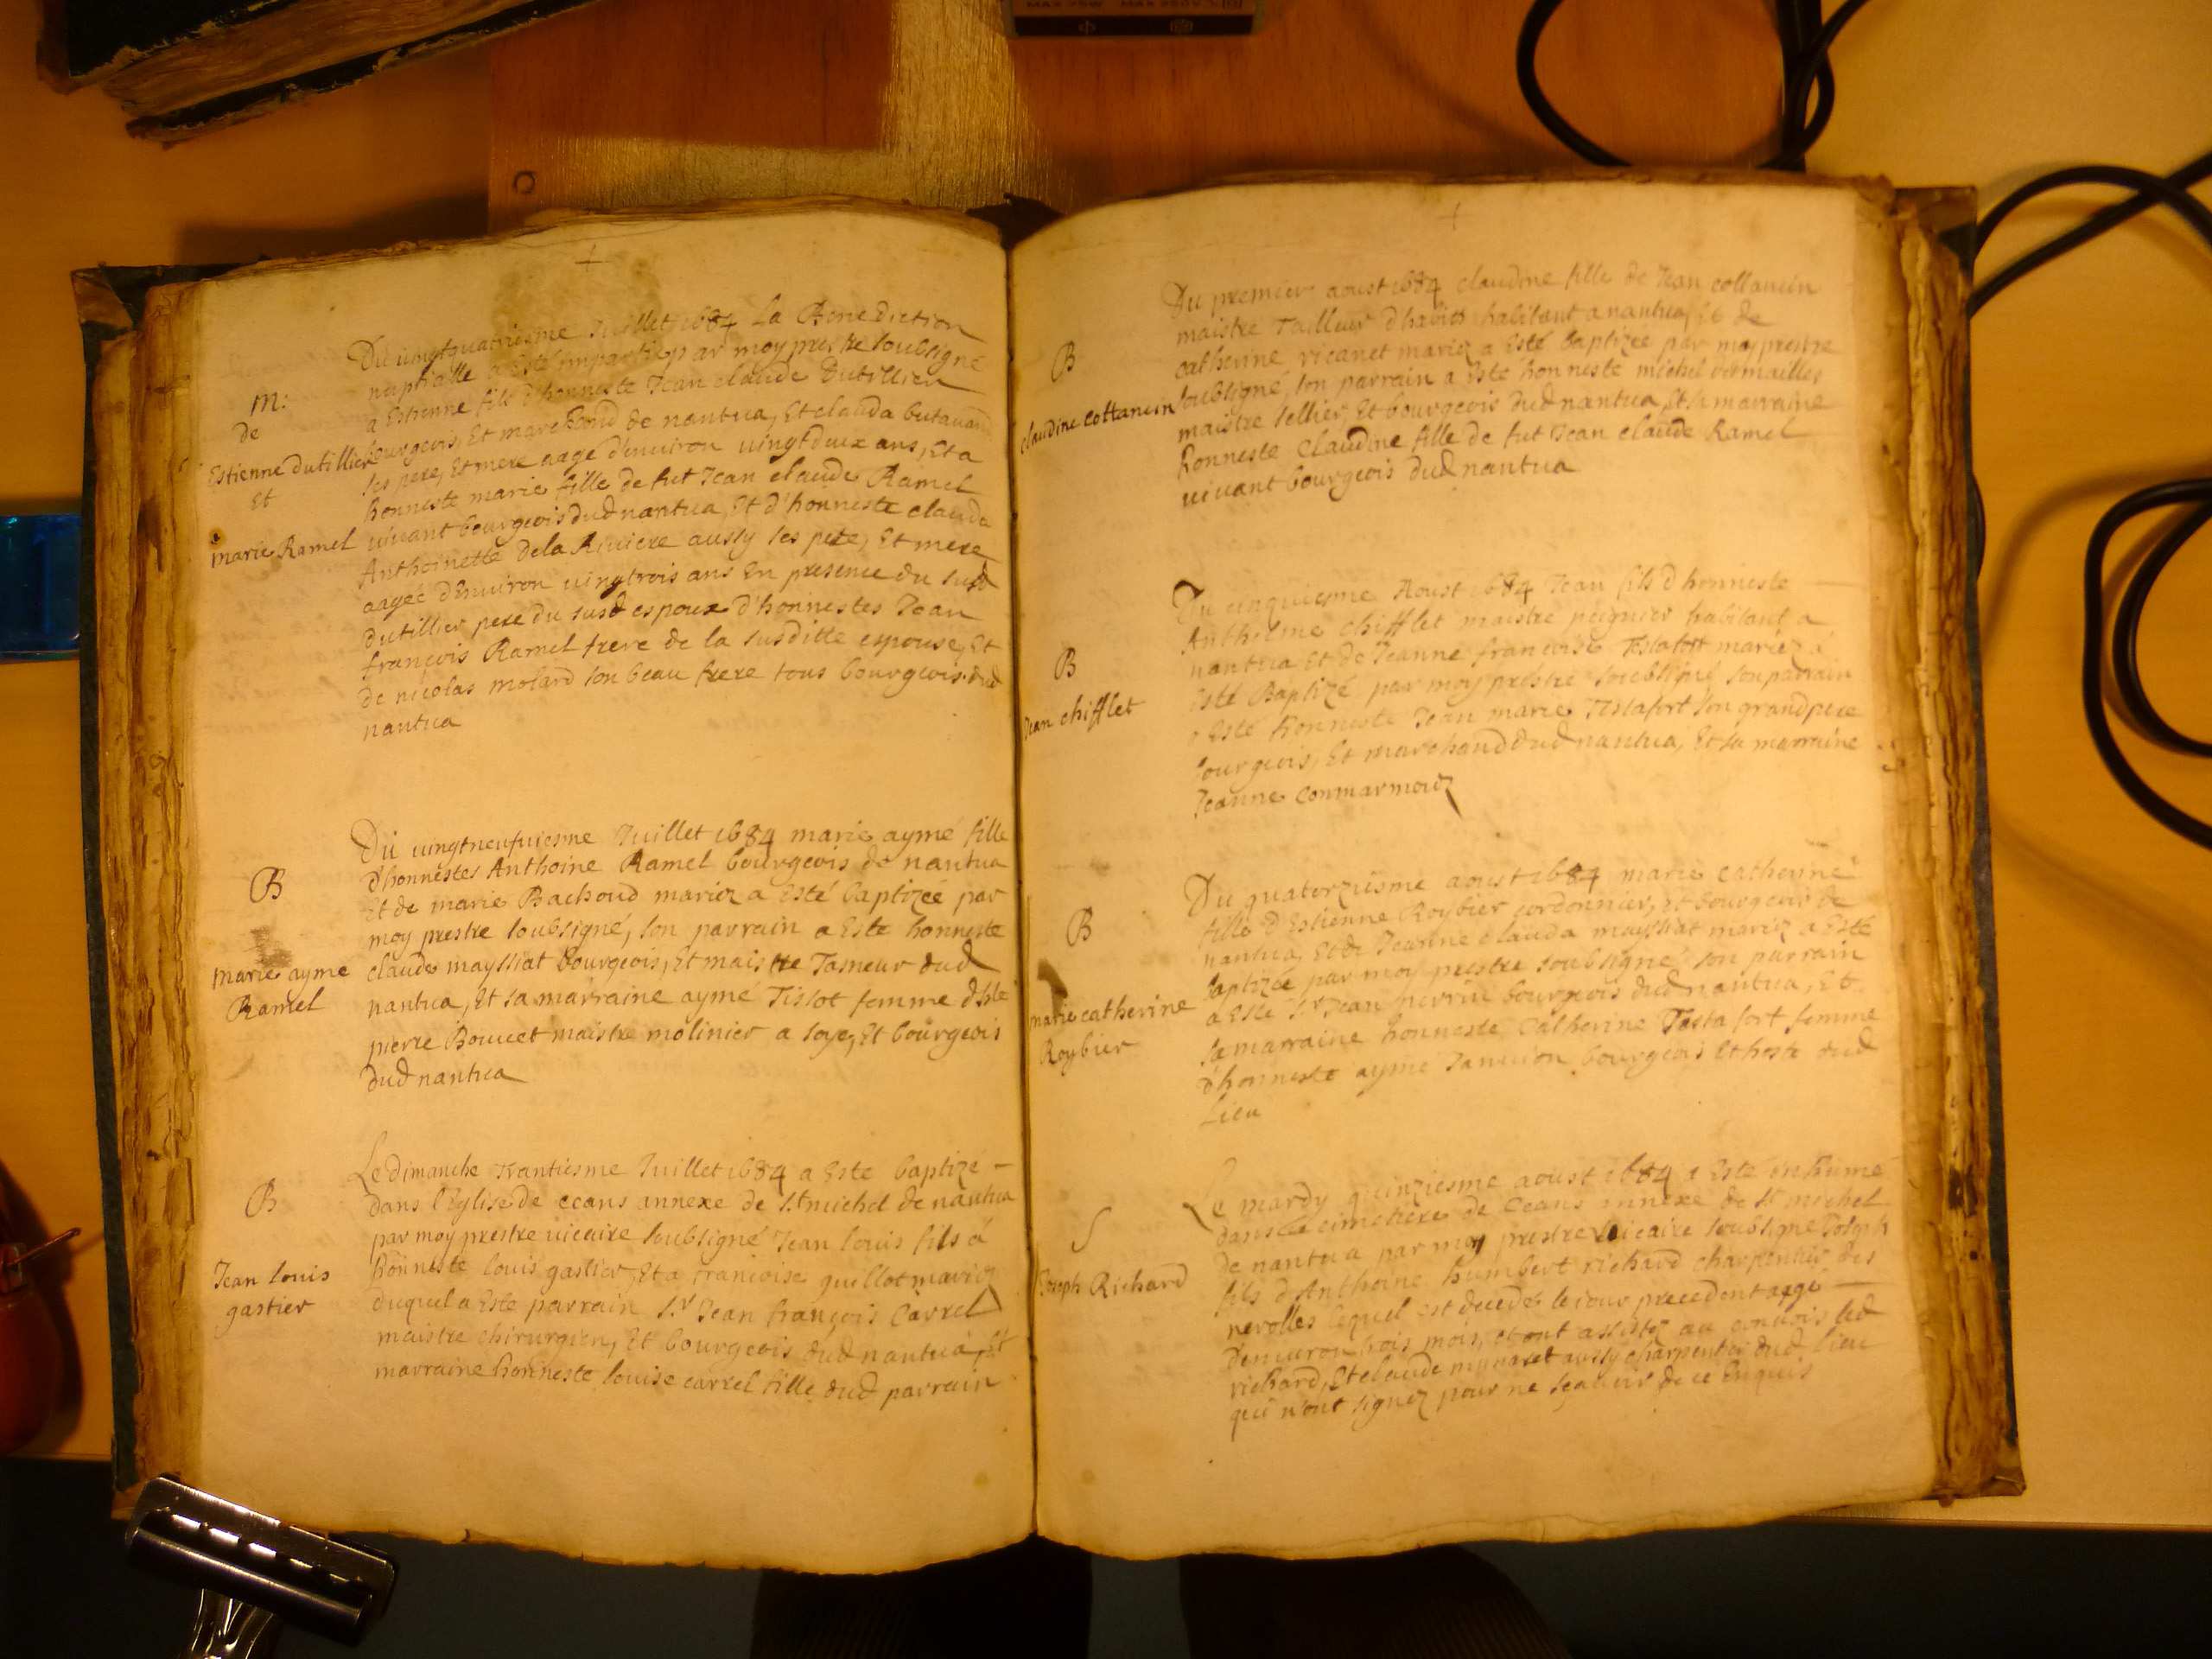 MAX 75W MAX 250V
+
Du vingtquatriesme Juillet 1684 La Benediction
nuptialle a Esté impartie par moy prestre soubsigné
a Estienne fils d'honneste Jean claude Dutillier
bourgeois, Et marchand de nantua, Et clauda butavand
ses pere, Et mere aagé d'environ vingtdeux ans, Et a
honneste marie fille de fut Jean claude Ramel
vivant bourgeois dud nantua, Et d'honneste clauda
Anthoinette dela Riviere aussy ses pere, Et mere
aagée d'Environ vingtrois ans En presence du susd
dutillier pere du susd espoux d'honnestes Jean
françois Ramel frere de la susditte espouse, Et
de nicolas molard son beau frere tous bourgeois dud
nantua
m:
de
Estienne dutillier
Et
marie Ramel
Du vingtneufviesme Juillet 1684 marie aymé fille
d'honnestes Anthoine Ramel bourgeois de nantua
Et de marie Bachoud mariez a Esté baptizée par
moy prestre soubsigné, son parrain a Este honneste
claude mayssiat bourgeois, Et maistre Tasneur dud
nantua, Et sa marraine aymé Tissot femme d'hte
pierre Bouvet maistre molinier a soye, Et bourgeois
dud nantua
B
marie ayme
Ramel
Le dimanche trantiesme Juillet 1684 a Este baptizé
dans l'Eglise de ceans annexe de St michel de nantua
par moy prestre vicaire soubsigné Jean louis fils a
honneste louis gastier, Et a françoise guillot mariez
duquel a Este parrain Sr Jean françois Carrel
maistre chirurgien, Et bourgeois dud nantua, Et
marraine honneste louise carrel fille dud parrain
B
Jean louis
gastier
+
Du premier aoust 1684 claudine fille de Jean cottancin
maistre Tailleur d'habits habitant a nantua, Et de
catherine ricanet mariez a Esté baptizée par moy prestre
soubsigné, son parrain a Este honneste michel vermailles
maistre sellier, Et bourgeois dud nantua, Et sa marraine
honneste Claudine fille de fut Jean claude Ramel
vivant bourgeois dud nantua
B
claudine cottancin
Du cinquiesme Aoust 1684 Jean fils d'honneste
Anthelme chifflet maistre peignier habitant a
nantua Et de Jeanne françoise Testafort mariez a
Esté Baptizé par moy prestre soubsigné son parrain
a Esté honneste Jean marie Testafort son grand pere
bourgeois, Et marchand dud nantua, Et sa marraine
Jeanne Conmarmoiz
B
Jean chifflet
Du quatorziesme aoust 1684 marie catherine
fille d'Estienne Roybier cordonnier, Et bourgeois de
nantua, Et de Jeanne clauda mayssiat mariez a Esté
baptizée par moy prestre soubsigné son parrain
a Esté Sr Jean perrin bourgeois dud nantua, Et
sa marraine honneste Catherine Testafort femme
d'honneste aymé Janvion bourgeois Et hoste dud
Lieu
B
marie catherine
Roybier
Le mardy quinziesme aoust 1684 a Esté enhumé
dans le cimetiere de Ceans annexe de St michel
de nantua par moy prestre vicaire soubsigné Joseph
fils d'Anthoine humbert richard charpentier des
nerolles lequel est decedé le iour precedent aagé
d'environ trois mois, et ont assistez au convois led
richard, Et claude mynaret aussy charpentier dud lieu
qui n'ont signez pour ne sçavoir de ce Enquis
S
Joseph Richard